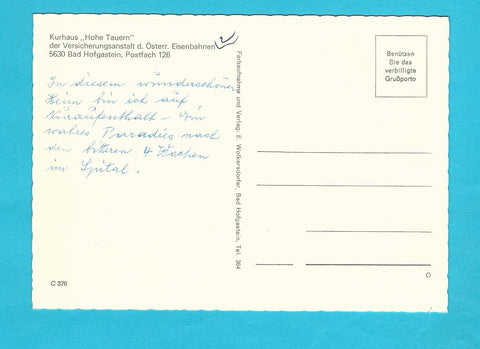 Kurhaus „Hohe Tauern"
der Versicherungsanstalt d. Österr. Eisenbahnen
5630 Bad Hofgastein, Postfach 126
In diesem wunderschönen
Heim bin ich auf
Kuraufenthalt – Ein
wahres Paradies nach
den bitteren 4 Wochen
im Spital.
C 370
Farbaufnahme und Verlag: E. Wolkersdorfer, Bad Hofgastein, Tel. 364
Benützen
Sie das
verbilligte
Grußporto